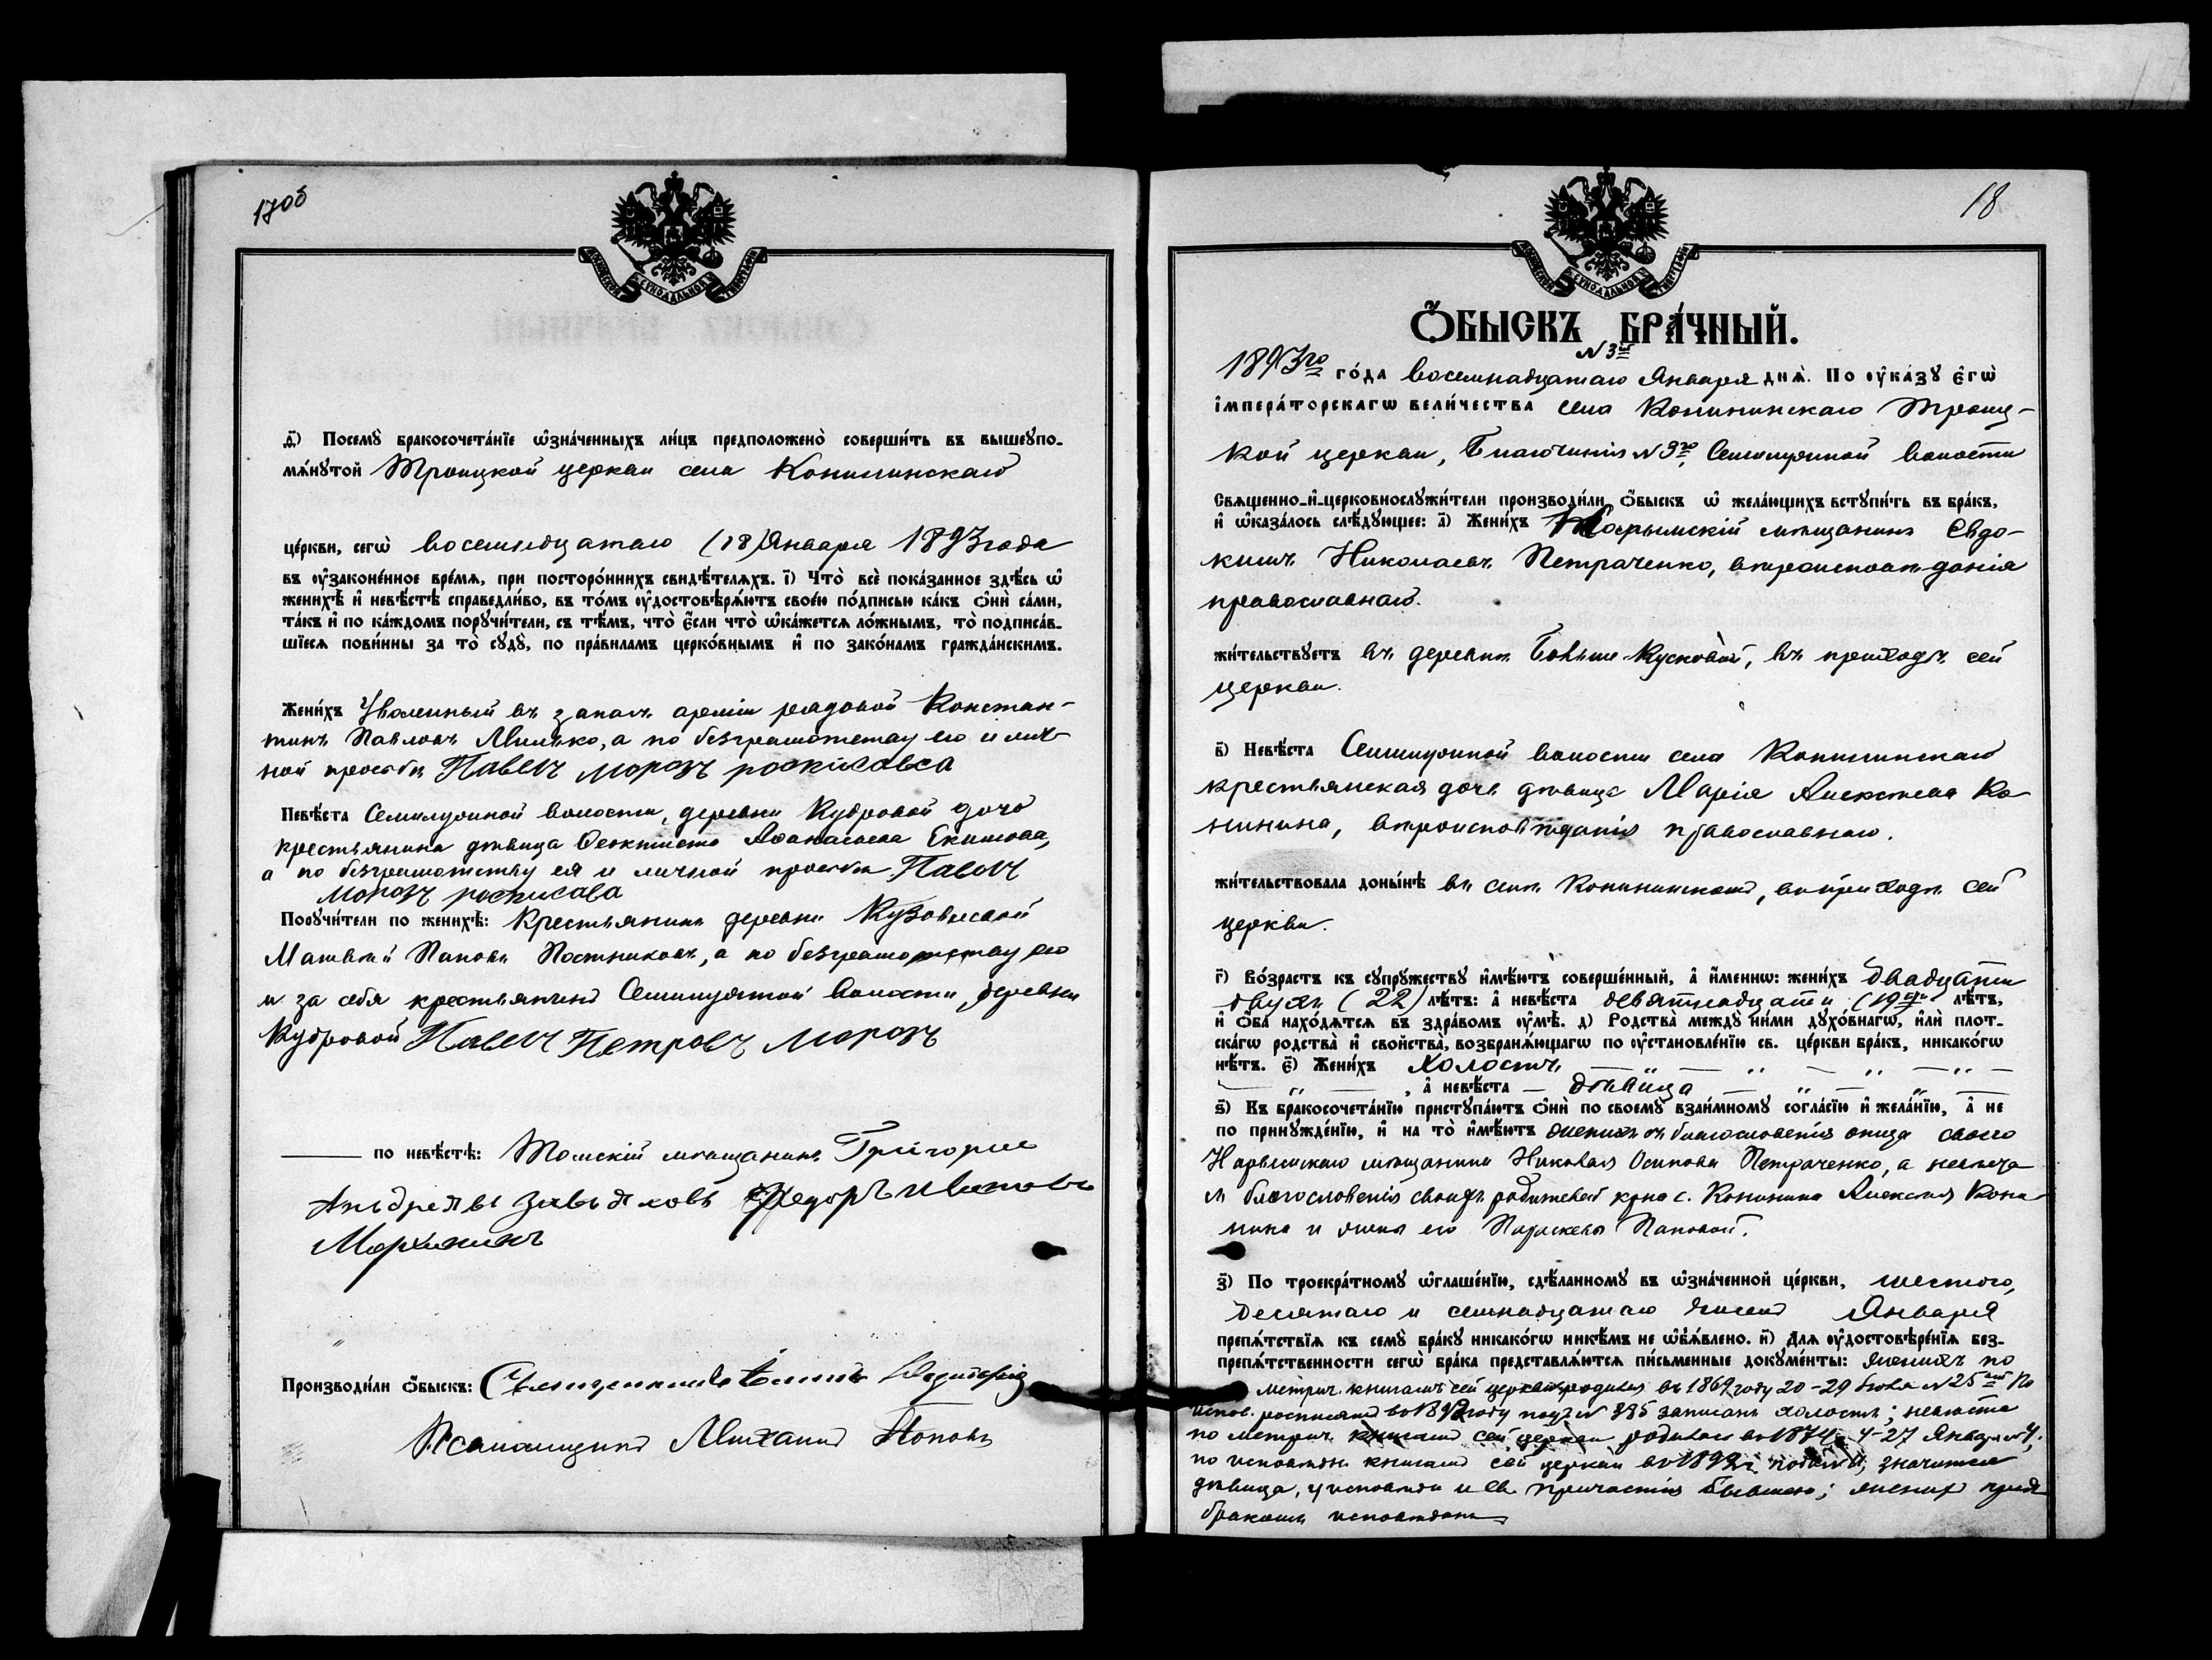 17об
СѴНОДАЛЬНОЙ
ѳ҃) Посемꙋ̀ бракосочета́нїе ѡ҆зна́ченныхъ ли́цъ предположено̀ соверши́ть въ вышеꙋпо-
мѧ́нꙋтой Троицкой церкви села Конининскаго
це́ркви, сегѡ̀ восемнадцатаго (18) Января 1893 года
въ ᲂу҆зако́ненное вре́мѧ, при посторо́ннихъ свидѣ́телѧхъ. і҃) Что̀ всѐ пока́занное здѣ́сь ѡ҆
женихѣ̀ и҆ невѣ́стѣ справедли́во, въ то́мъ ᲂу҆достовѣрѧ́ютъ свое́ю по́дписью ка́къ ѻ҆нѝ са́ми,
та́къ и҆ по ка́ждомъ порꙋчи́тели, съ тѣ́мъ, что̀ є҆́сли что̀ ѡ҆ка́жетсѧ ло́жнымъ, то̀ подписа́в-
шїесѧ пови́нны за то̀ сꙋдꙋ̀, по пра́виламъ церко́внымъ и҆ по зако́намъ гражда́нскимъ.
Жени́хъ Уволенный въ запасъ арміи рядовой Констан-
тинъ Павловъ Милько, а по безграмотству его и лич-
ной просьбѣ Павелъ Морозъ росписовса
Невѣ́ста Семилужной волости, деревни Кудровой дочь
крестьянина дѣвица Феоктиста Афанасьева Екимова,
а по безграмотству ея и личной просьбѣ Павелъ
Морозъ росписова
Порꙋчи́тели по женихѣ̀: Крестьянинъ деревни
Матвѣй Поповъ Постниковъ, а по безграмотству его
и за себя крестьянинъ Семилужной волости, деревни
Кудровой Павелъ Петровъ Морозъ
по невѣ́стѣ: Томскій мѣщанинъ Григорие
Андреявы Завьяловъ Федоръ Ивановъ
Производи́ли ѻ҆́быскъ: Священникъ
Псаломщикъ Михаилъ Поповъ
18
СѴНОДАЛЬНОЙ
Ѻ҆́БЫСКЪ БРА́ЧНЫЙ.
N 3й
1893го го́да восемнадцатаго Января днѧ̀. По ᲂу҆ка́зꙋ є҆гѡ̀
і҆мпера́торскагѡ вели́чества села Конининскаго Троиц-
кой церкви, Благочинія N 3го, Семилужной волости
Свѧще́нно-и҆-церковнослꙋжи́тели производи́ли ѻ҆́быскъ ѡ҆ жела́ющихъ встꙋпи́ть въ бра́къ,
и҆ ѡ҆каза́лось слѣ́дꙋющее: а҃) Жени́хъ Нарымскій мѣщанинъ Евдо-
кимъ Николаевъ Петраченко, вѣроисповѣданія
православнаго.
жи́тельствꙋетъ въ деревнѣ Больше-Кусковой, въ приходѣ сей
церкви.
в҃) Невѣ́ста Семилужной волости села Конининскаго
крестьянская дочь дѣвица Марія Алексѣева Ко-
нинина, вѣроисповѣданія православнаго.
жи́тельствовала доны́нѣ въ селѣ Конининскомъ, въ приходѣ сей
церкви.
г҃) Во́зрастъ къ сꙋпрꙋ́жествꙋ и҆мѣ́ютъ соверше́нный, а҆ и҆́меннѡ: жени́хъ двадцати
двухъ (22) лѣ́тъ: а҆ невѣ́ста девятнадцати (19ти лѣ́тъ,
и҆ ѻ҆́ба нахо́дѧтсѧ въ здра́вомъ ᲂу҆мѣ̀. д҃) Родства̀ междꙋ̀ ни́ми дꙋхо́внагѡ, и҆лѝ плот-
ска́гѡ родства̀ и҆ сво́йства̀, возбранѧ́ющагѡ по ᲂу҆становле́нїю св. це́ркви бра́къ, никако́гѡ
нѣ́тъ. є҃) Жени́хъ холостъ — „ — „ — „ — „ —
— „ —, а҆ невѣ́ста — дѣвица — „ — „ —
ѕ҃) Къ бракосочета́нїю приступа́ютъ ѻ҆нѝ по своемꙋ̀ взаи́мномꙋ согла́сїю и҆ жела́нїю, а҆ не
по принꙋжде́нїю, и҆ на то̀ и҆мѣ́ютъ женихъ благословенія отца своего
Нарымскаго мѣщанина Николая Осипова Петраченко, а невѣста
и благословенія своихъ родителей кр-на с. Конинина Алексѣя Кони-
нина и жены его Параскевы Поповой.
з҃) По троекра́тномꙋ ѡ҆глаше́нїю, сдѣ́ланномꙋ въ ѡ҆зна́ченной це́ркви, шестого,
десятаго и семнадцатаго чиселъ Января
препѧ́тствїѧ къ семꙋ̀ бра́кꙋ никако́гѡ никѣ́мъ не ѡ҆б̾ѧ́влено. и҃) Длѧ ᲂу҆достовѣре́нїѧ без-
препѧ́тственности сегѡ̀ бра́ка представлѧ́ютсѧ пи́сьменные докꙋме́нты: женихъ по
метрич. книгамъ сей церкви родился въ 1869 году 20-29 N 25 По
испов. росписямъ въ 1892 году подъ N 885 записанъ холостъ; невѣста
по метрич. книгамъ сей церкви родилась въ 1874 г. 4-27 Января N 4;
по исповѣдн. книгамъ сей церкви въ 1892 г. значится
дѣвица, у исповѣди и св. причастія бывшею; женихъ предъ
бракомъ исповѣданъ